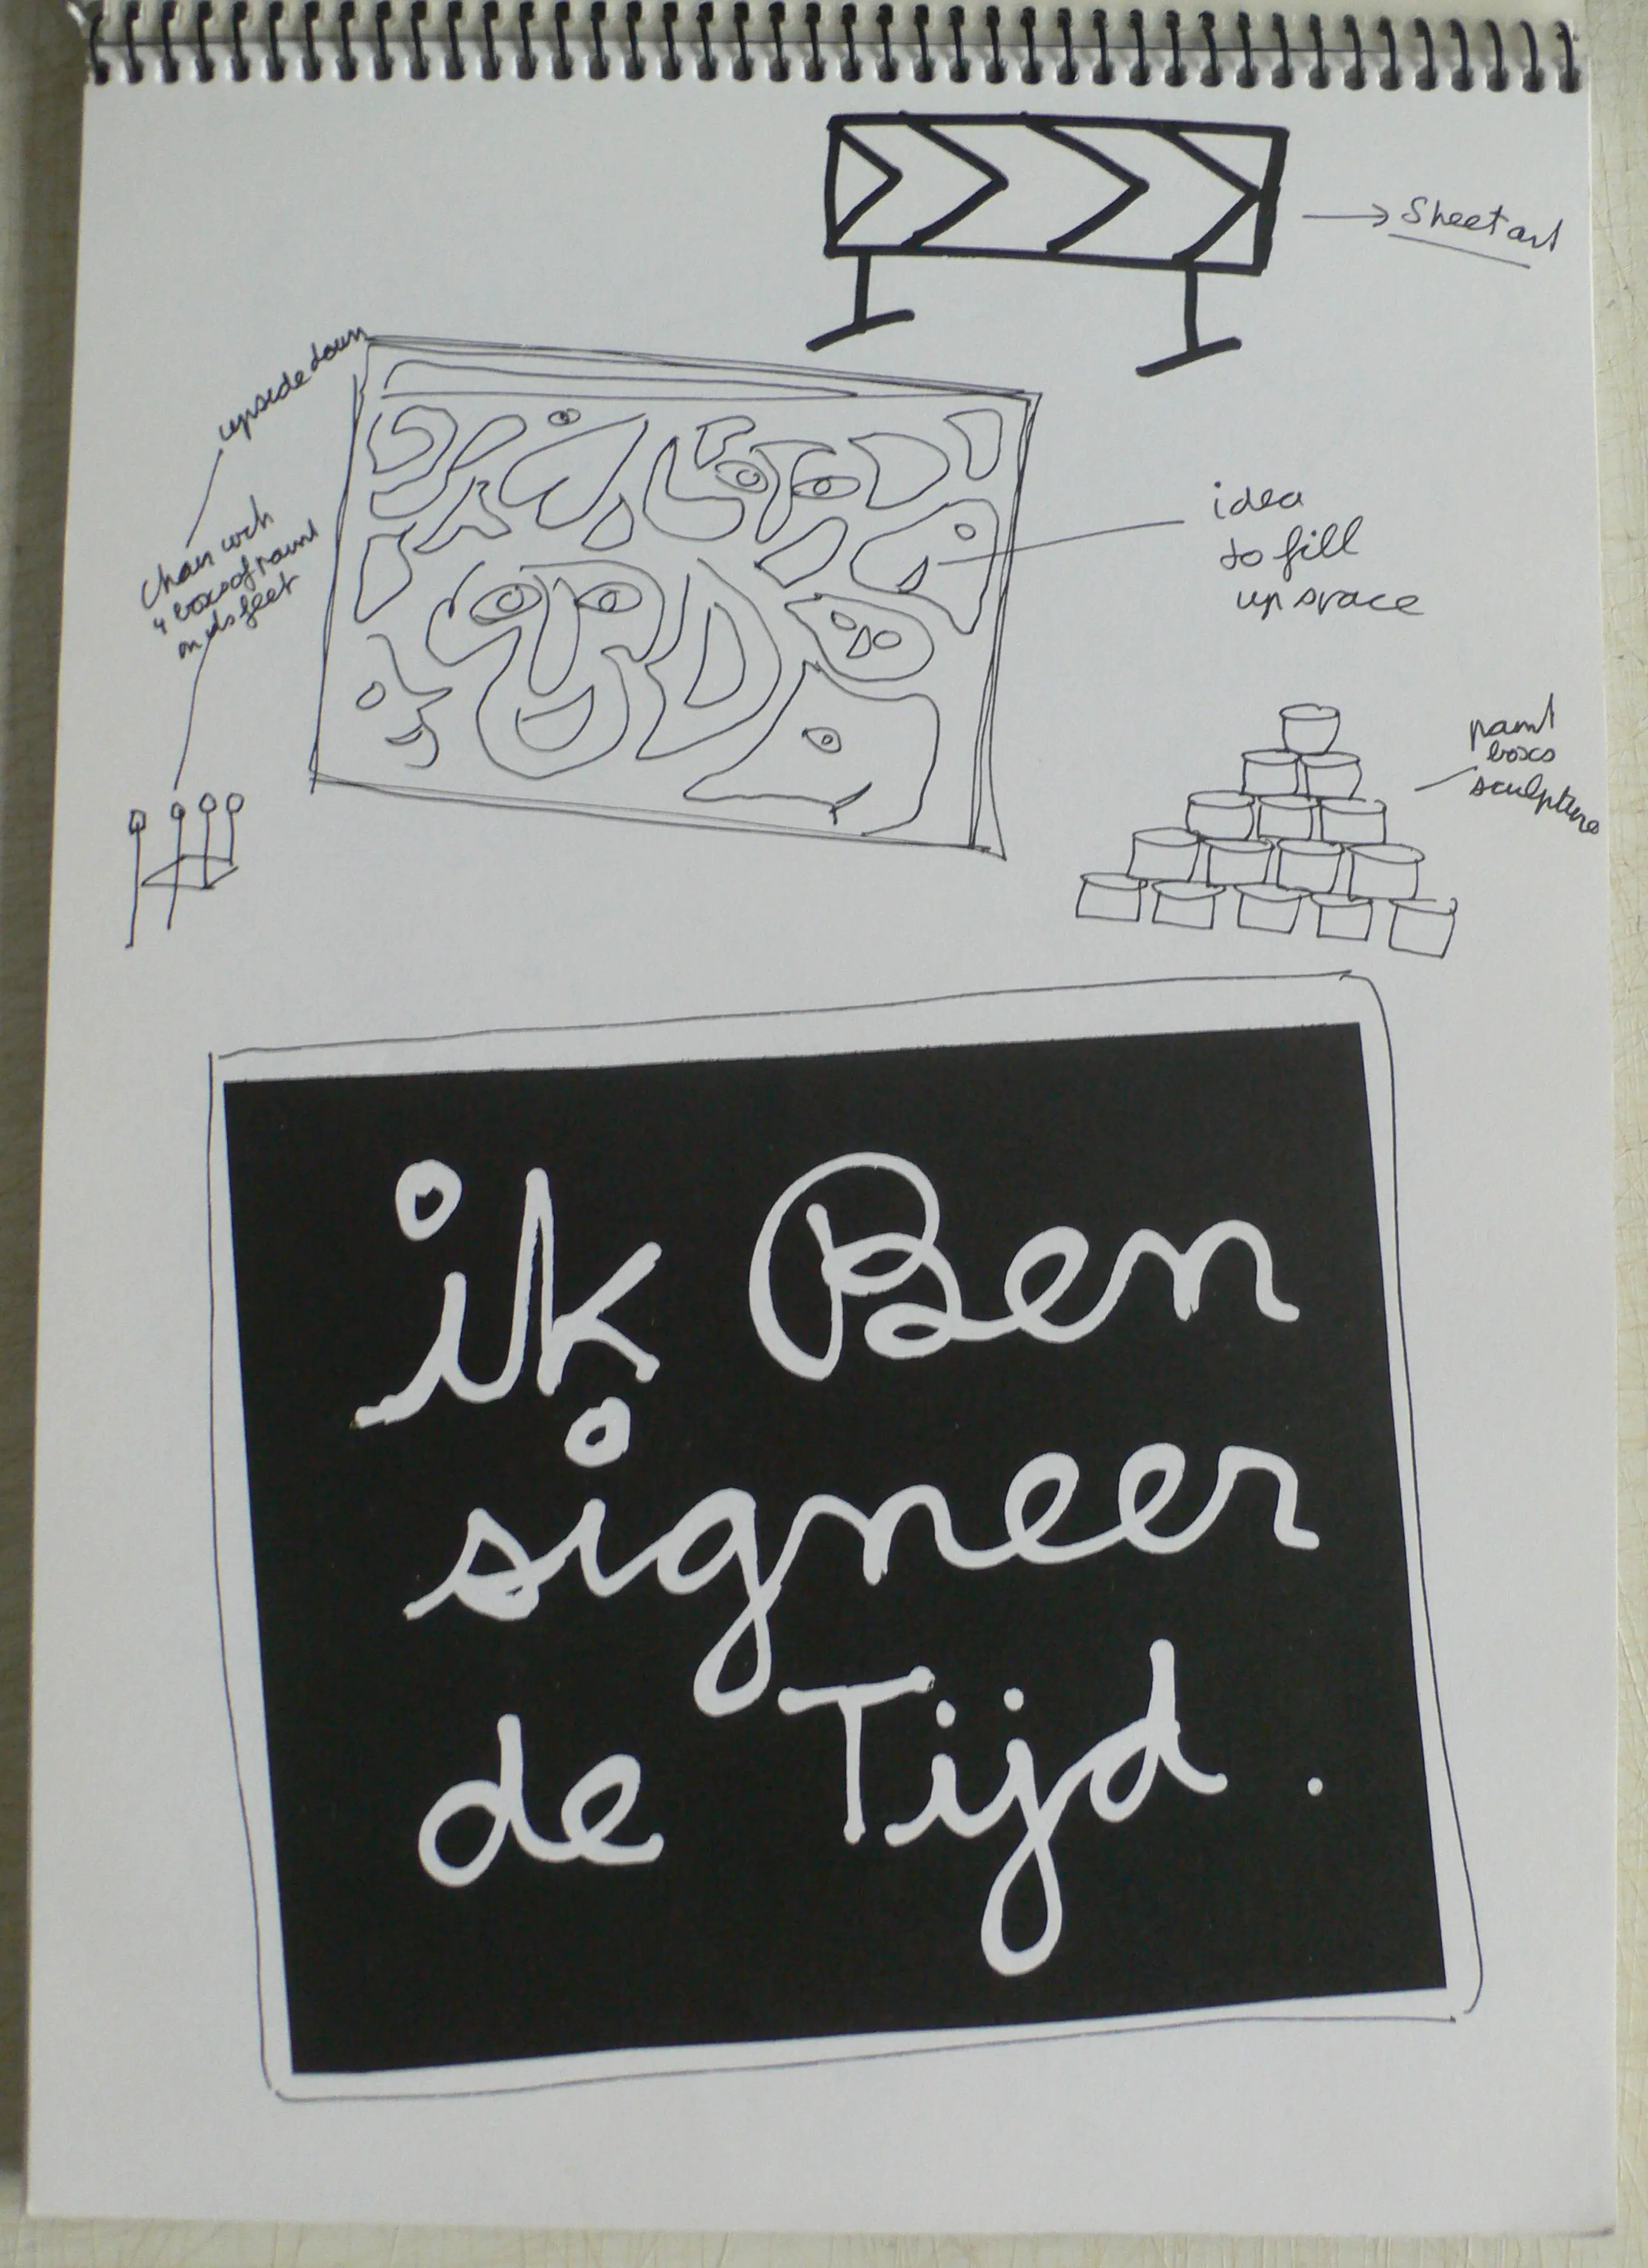 Sheet art
upside down
idea
to fill
up space
Chair with
4 boxes of paint
on its feet
paint
boxs
sculpture
ik Ben
signeer
de Tijd.